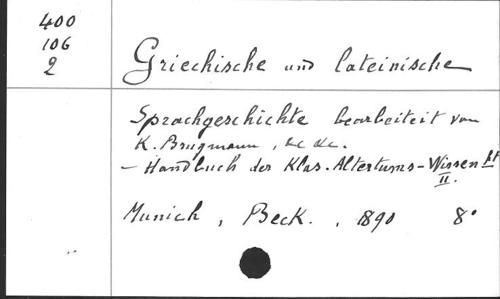 400
106
2
Griechische und lateinische
Sprachgeschichte bearbeiteit von
K. Brugmann, &c &c.
- Handbuch der Klas. Altertums-Wissen ft
II.
Munich, Beck., 1890 8°